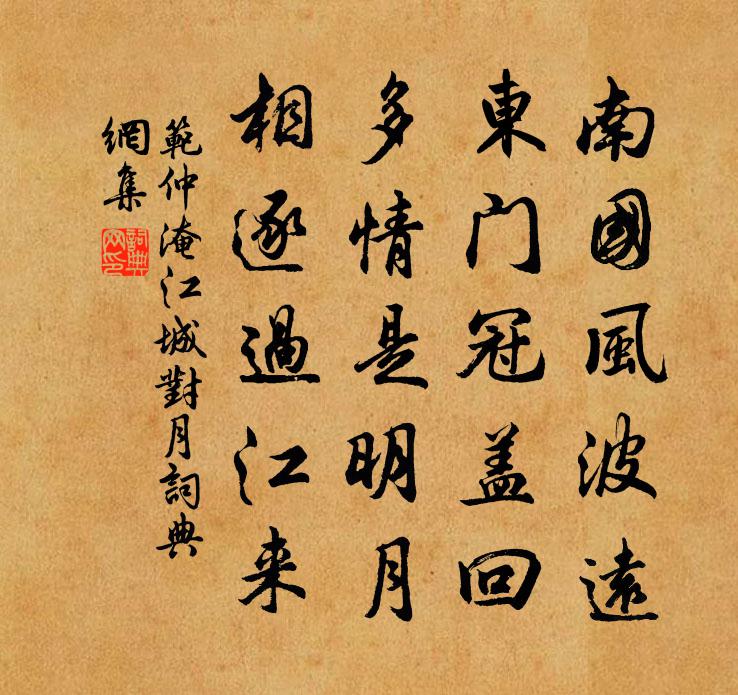 南國風波遠
東門冠盖回
多情是明月
相逐過江来
範仲淹江城對月詞典
網集
詞典
网印